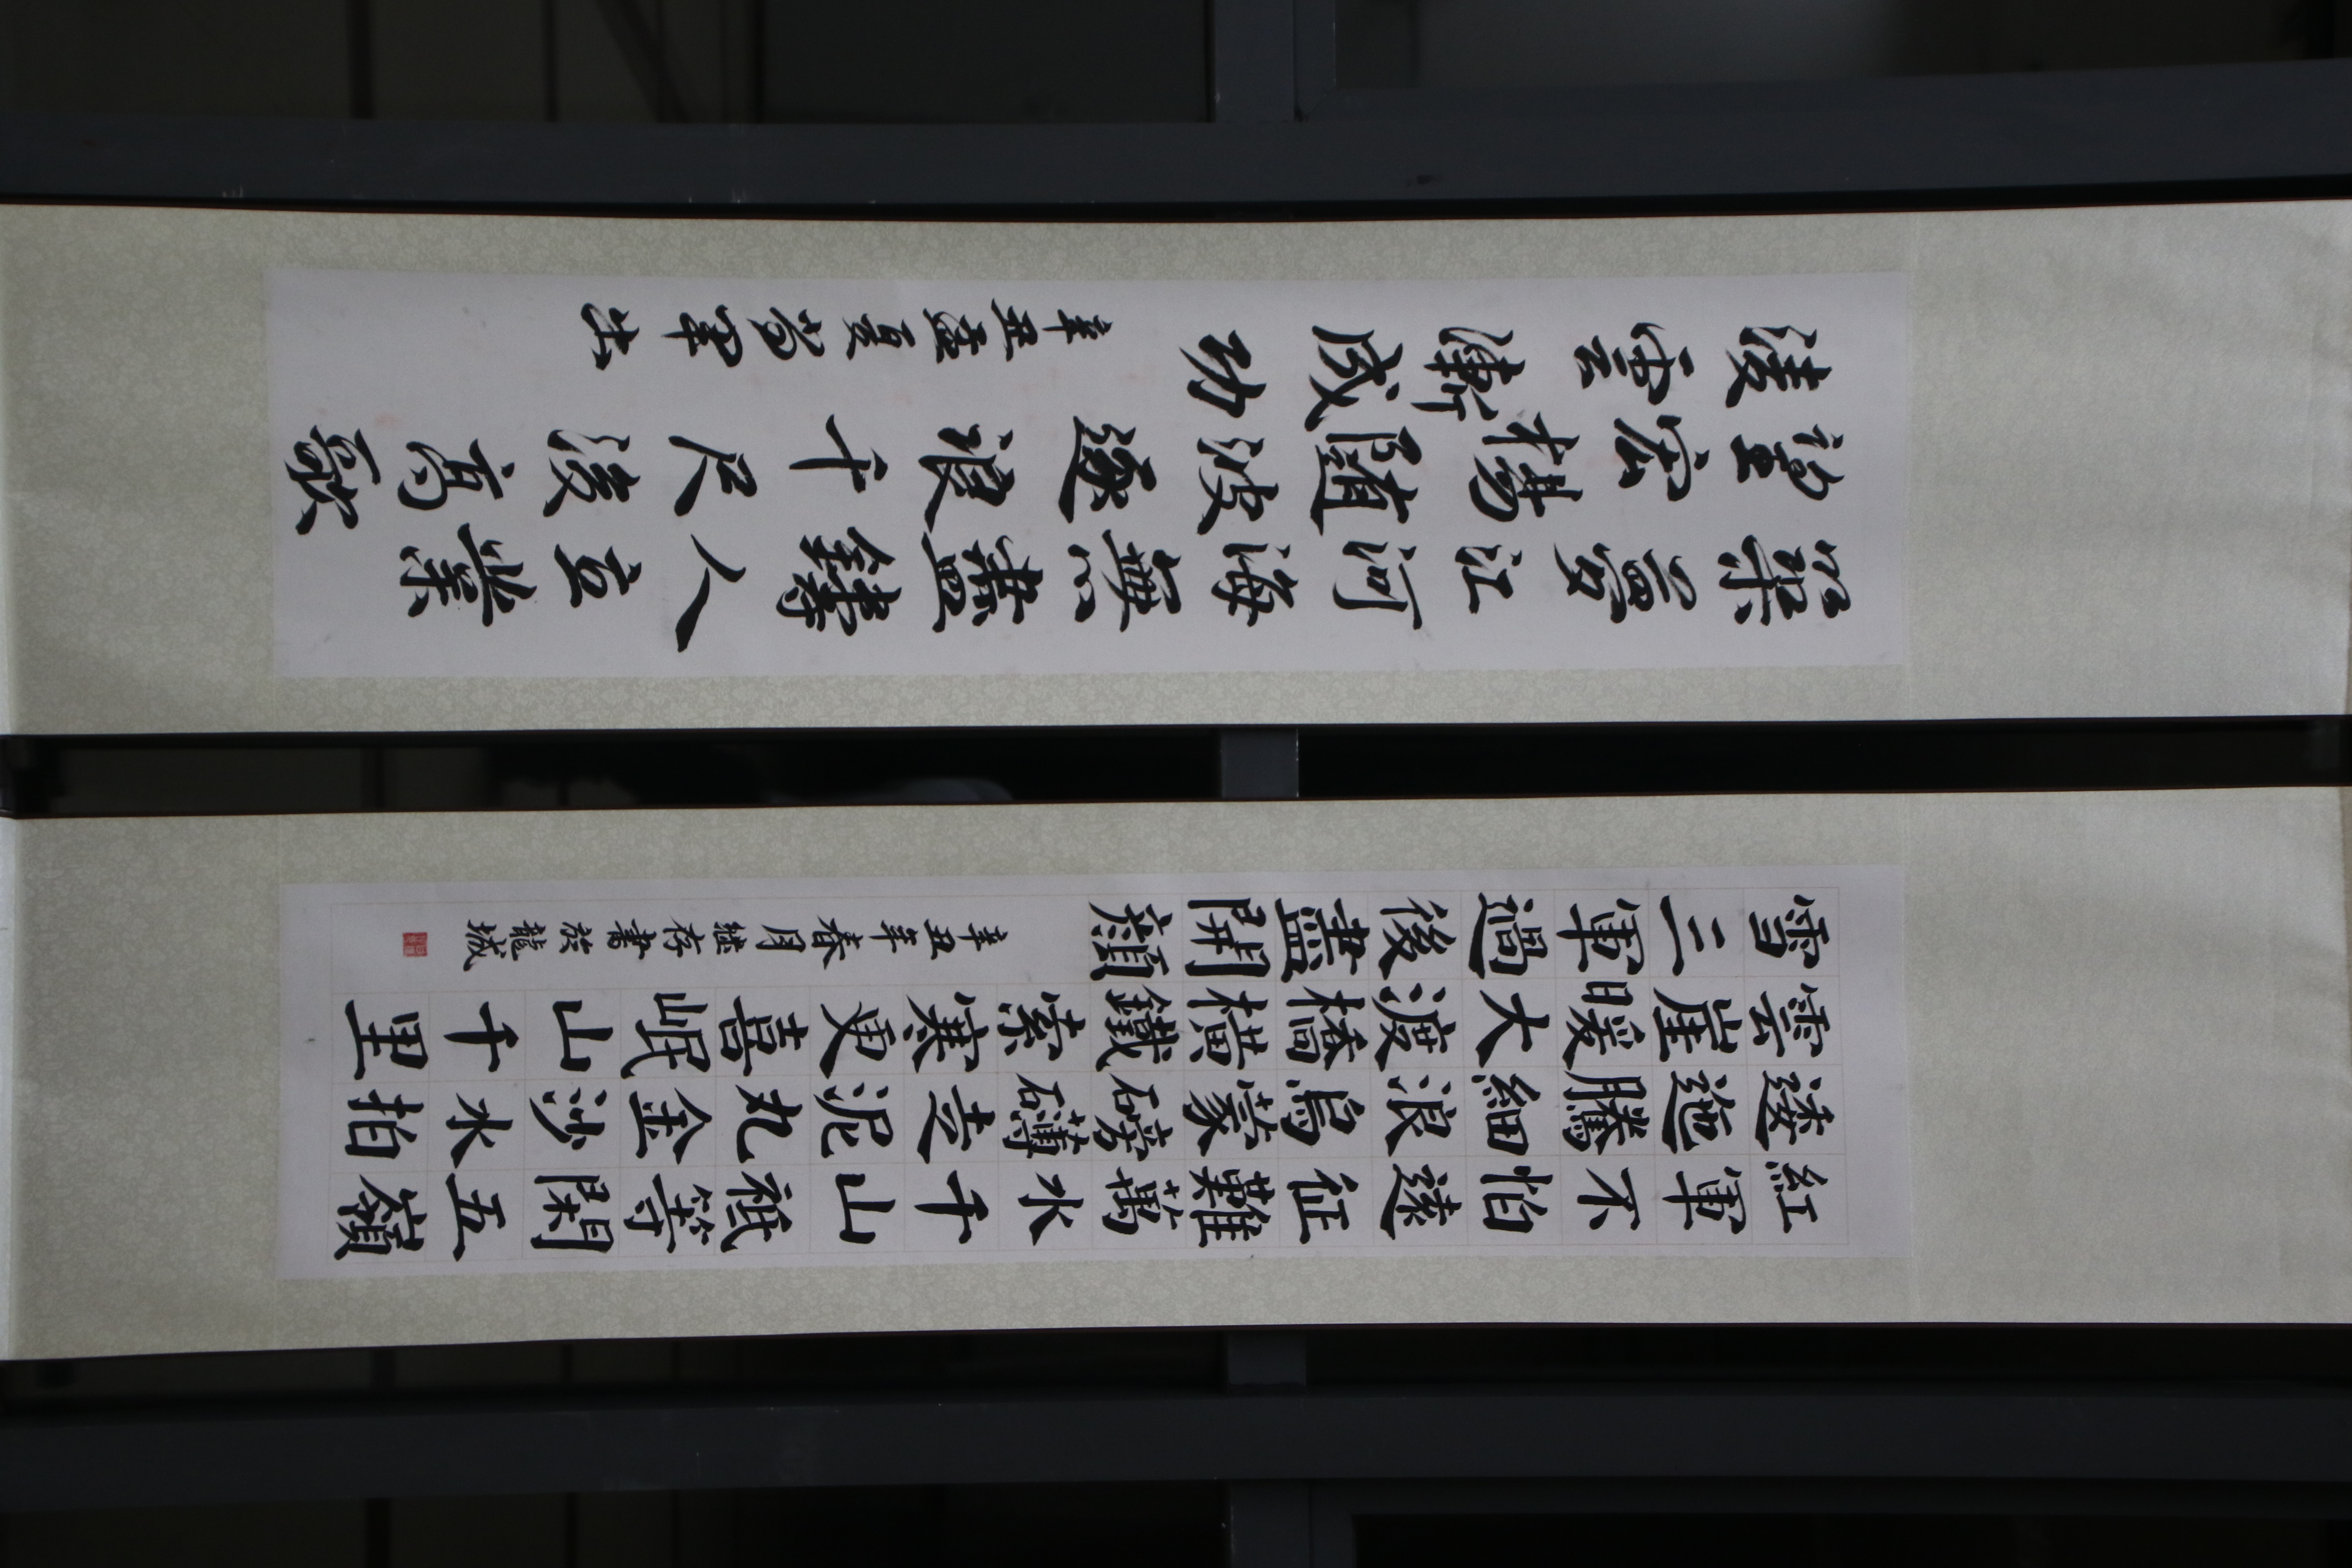 紅軍不怕遠征難萬水千山祗等閑五嶺
逶迤騰細浪烏蒙磅礴走泥丸金沙水拍
雲崖暖大渡橋橫鐵索寒更喜岷山千里
雪三軍過後盡開顏
辛丑年春月继存書於龍城
夢江河海無盡鑄人立業
宏揚隨波逐浪千尺凌高歌
凌雲漸成功
辛丑盛夏军书